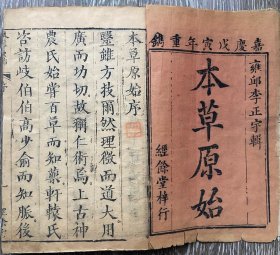 嘉慶戊寅年重鐫
雍邱李正宇輯
本草原始
經餘堂梓行
本草原始序
醫雖方技爾然理微而道大用
廣而功切故稱仁術焉上古神
農氏始嘗百草而知藥軒轅氏
咨訪岐伯伯高少俞而知脈後